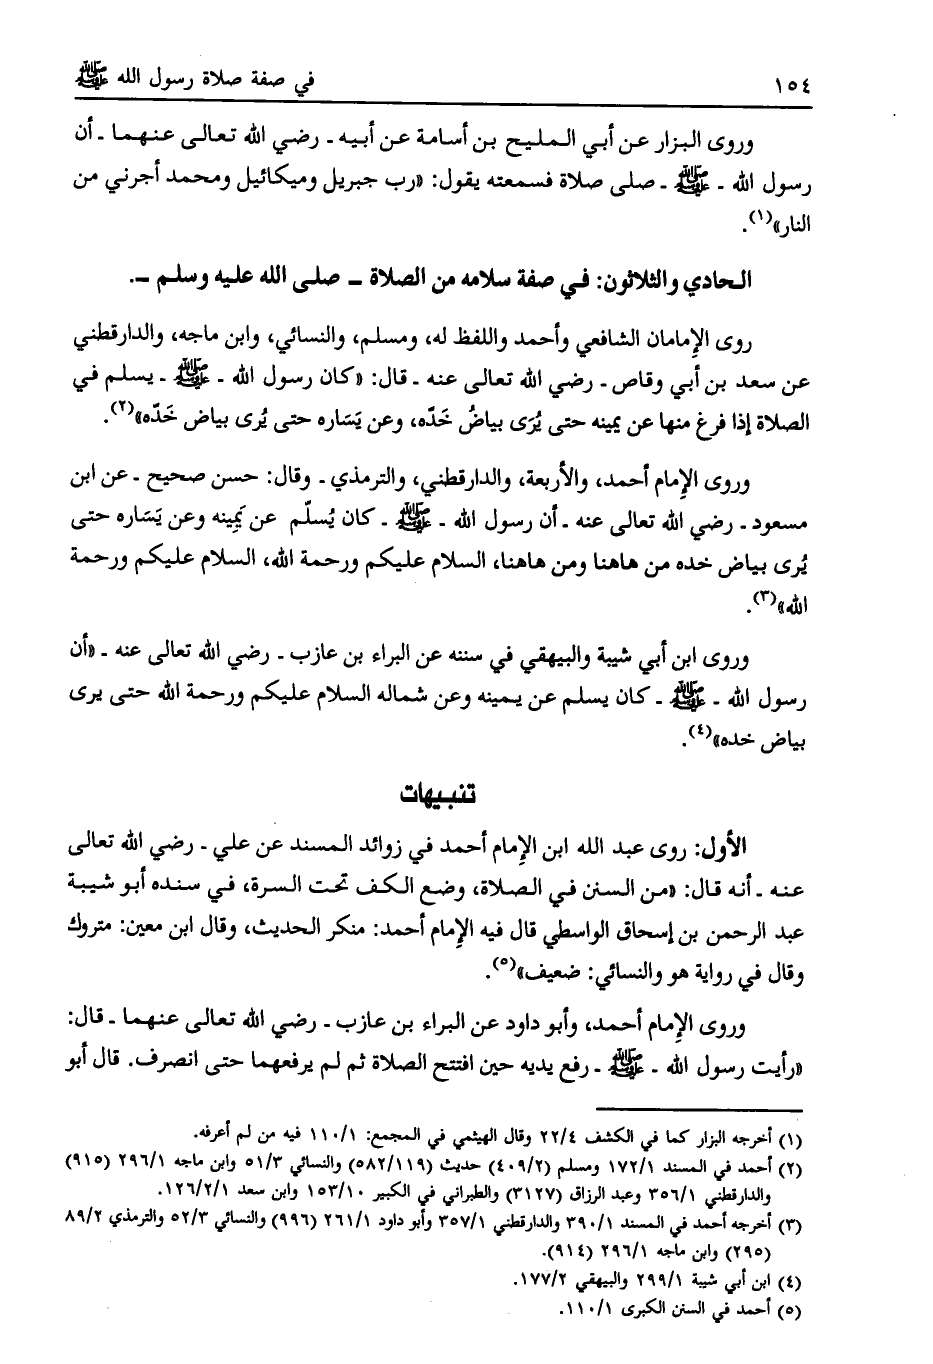 ١٥٤ في صفة صلاة رسول الله ﷺ
وروى البزار عن أبي المليح بن أسامة عن أبيه ـ رضي الله تعالى عنهما ـ أن
رسول الله ـ ﷺ ـ صلى صلاة فسمعته يقول: «رب جبريل وميكائيل ومحمد أجرني من
النار»(١).
الحادي والثلاثون: في صفة سلامه من الصلاة ـ صلى الله عليه وسلم ـ.
روى الإمامان الشافعي وأحمد واللفظ له، ومسلم، والنسائي، وابن ماجه، والدارقطني
عن سعد بن أبي وقاص ـ رضي الله تعالى عنه ـ قال: «كان رسول الله ـ ﷺ ـ يسلم في
الصلاة إذا فرغ منها عن يمينه حتى يُرَى بياضُ خَدّه، وعن يَسَاره حتى يُرى بياض خَدّه»(٢).
وروى الإمام أحمد، والأربعة، والدارقطني، والترمذي ـ وقال: حسن صحيح ـ عن ابن
مسعود ـ رضي الله تعالى عنه ـ أن رسول الله ـ ﷺ ـ كان يُسلّم عن يَمِينه وعن يَسَاره حتى
يُرى بياض خده من هاهنا ومن هاهنا، السلام عليكم ورحمة الله، السلام عليكم ورحمة
الله»(٣).
وروى ابن أبي شيبة والبيهقي في سننه عن البراء بن عازب ـ رضي الله تعالى عنه ـ «أن
رسول الله ـ ﷺ ـ كان يسلم عن يمينه وعن شماله السلام عليكم ورحمة الله حتى يرى
بياض خده»(٤).
تنبيهات
الأول: روى عبد الله ابن الإمام أحمد في زوائد المسند عن علي ـ رضي الله تعالى
عنه ـ أنه قال: «من السنن في الصلاة، وضع الكف تحت السرة، في سنده أبو شيبة
عبد الرحمن بن إسحاق الواسطي قال فيه الإمام أحمد: منكر الحديث، وقال ابن معين: متروك
وقال في رواية هو والنسائي: ضعيف»(٥).
وروى الإمام أحمد، وأبو داود عن البراء بن عازب ـ رضي الله تعالى عنهما ـ قال:
«رأيت رسول الله ـ ﷺ ـ رفع يديه حين افتتح الصلاة ثم لم يرفعهما حتى انصرف. قال أبو
(١) أخرجه البزار كما في الكشف ٢٢/٤ وقال الهيثمي في المجمع: ١١٠/١ فيه من لم أعرفه.
(٢) أحمد في المسند ١٧٢/١ ومسلم (٤٠٩/٢) حديث (٥٨٢/١١٩) والنسائي ٥١/٣ وابن ماجه ٢٩٦/١ (٩١٥)
والدارقطني ٣٥٦/١ وعبد الرزاق (٣١٢٧) والطبراني في الكبير ١٥٣/١٠ وابن سعد ١٢٦/٢/١.
(٣) أخرجه أحمد في المسند ٣٩٠/١ والدارقطني ٣٥٧/١ وأبو داود ٢٦١/١ (٩٩٦) والنسائي ٥٢/٣ والترمذي ٨٩/٢
(٢٩٥) وابن ماجه ٢٩٦/١ (٩١٤).
(٤) ابن أبي شيبة ٢٩٩/١ والبيهقي ١٧٧/٢.
(٥) أحمد في السنن الكبرى ١١٠/١.